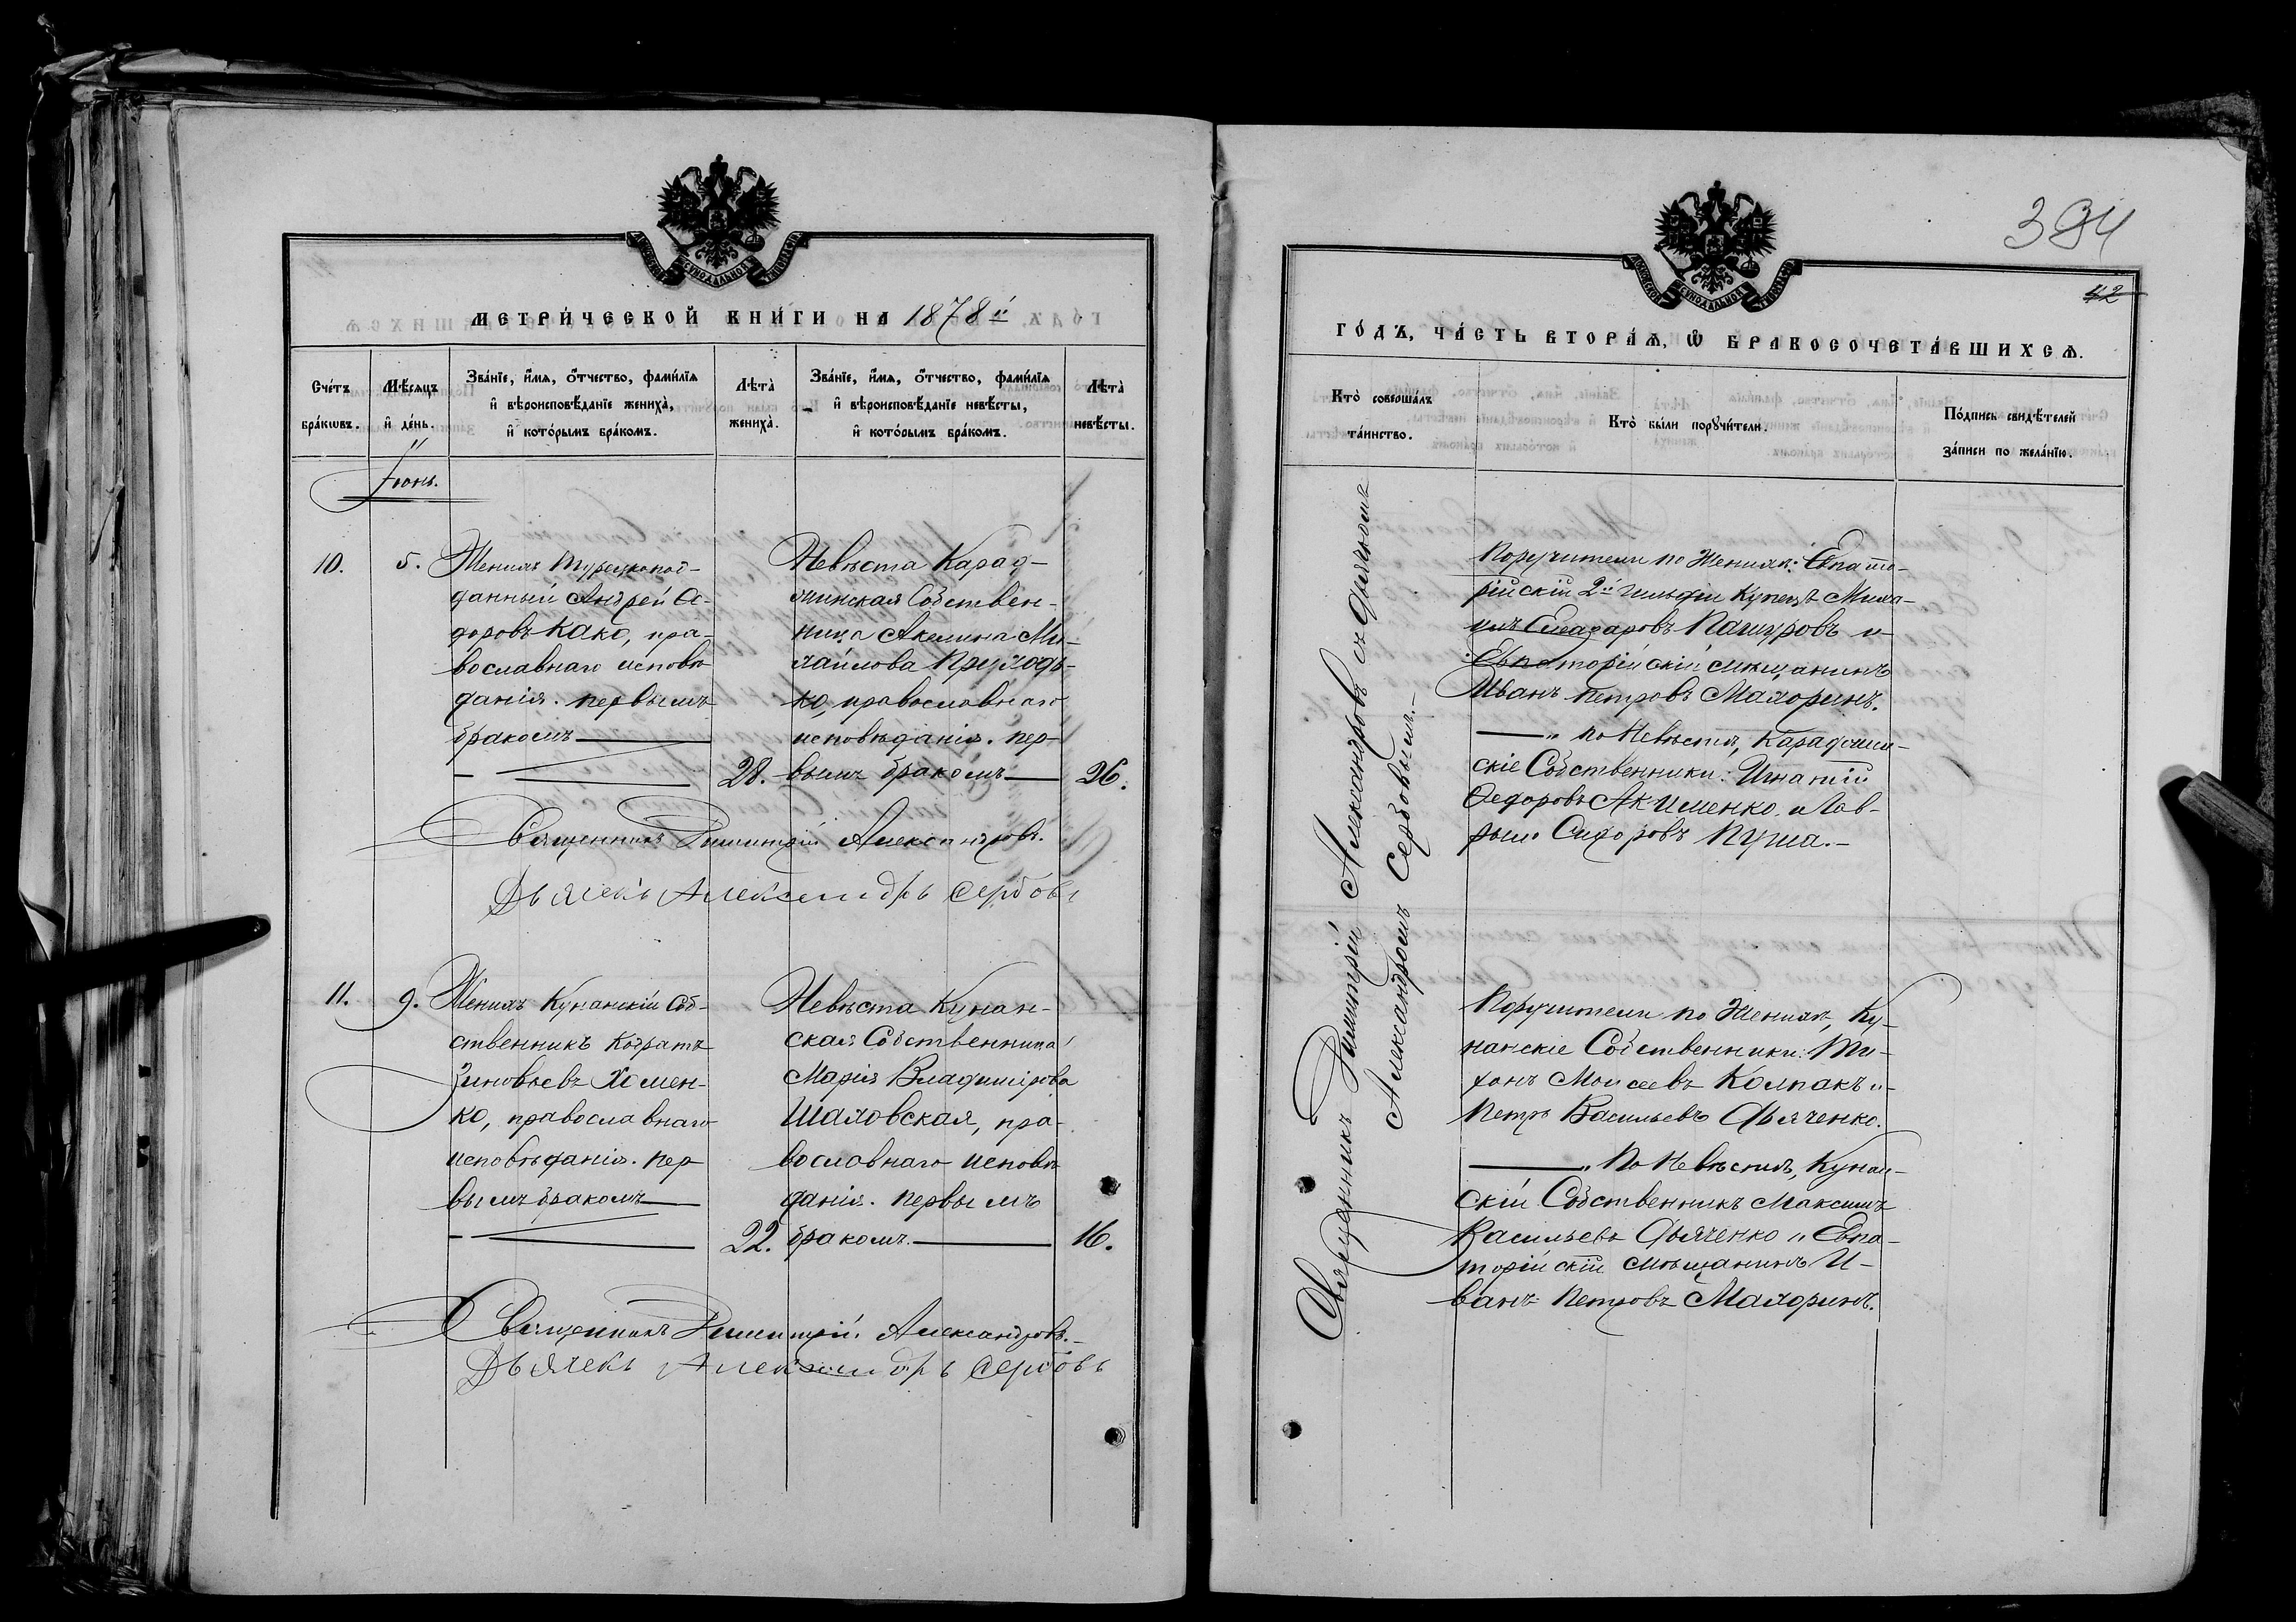 МЕТРИ́ЧЕСКОЙ КНИ́ГИ НА 1878й
Сче́тъ бра́кѡвъ.
Мѣ́сяцъ и де́нь.
Зва́нїе, и́мѧ, о́тчество, фами́лїѧ и вѣроисповѣ́данїе жениха̀, и кото́рымъ бра́комъ.
Лѣта̀ жениха̀.
Зва́нїе, и́мѧ, о́тчество, фами́лїѧ и вѣроисповѣ́данїе невѣ́сты, и кото́рымъ бра́комъ.
Лѣта̀ невѣ́сты.
Іюнь.
10.
5.
Женихъ Турецкопод-
данный Андрей
доровъ Како, пра-
вославнаго исповѣ
данія. первымъ
бракомъ
28.
Невѣста Карад-
жинская Собствен-
ница Акелина Ми-
хайлова
ко, православнаго
исповѣданія. пер-
вымъ бракомъ
26.
Священникъ Димитрій Александровъ.
Дьячекъ Александръ Сербовъ
11.
9.
Женихъ Кунанскій Соб-
ственникъ Кодратъ
Зиновьевъ Хомен-
ко, православнаго
исповѣданія. пер
вымъ бракомъ
22.
Невѣста Кунан-
ская Собственница
Марія Владимірова
Шаховская, пра-
вославнаго исповѣ
данія. первымъ
бракомъ.
16.
Священникъ Димитрій Александровъ.
Дьячекъ Александръ Сербовъ
394
42
ГО́ДЪ, ЧА́СТЬ ВТОРА́Ѧ, Ѡ БРАКОСОЧЕТА́ВШИХСѦ.
Кто̀ соверша́лъ та́инство.
Кто̀ бы́ли порꙋчи́тели.
По́дпись свидѣ́телей за́писи по жела́нїю.
Священникъ Димитрій Александровъ съ Дьячкомъ
Александромъ Сербовымъ.
Поручители по Женихѣ: Евпато-
рійскій 2й гильдіи Купецъ Миха-
илъ Пачуровъ и
Евпаторійскій мѣщанинъ
Иванъ Петровъ Махоринъ.
" По Невѣстѣ, Караджин-
скіе Собственники: Игнатій
Федоровъ Акименко и Гав-
рыло Сидоровъ
Поручители по Женихѣ, Ку-
нанскіе Собственники: Ти-
хонъ Моисеевъ Колпакъ и
Петръ Васильевъ Дьяченко.
" По Невѣстѣ, Кунан-
скій Собственникъ Максимъ
Васильевъ Дьяченко и Евпа-
торійскій мѣщанинъ И-
ванъ Петровъ Махоринъ.